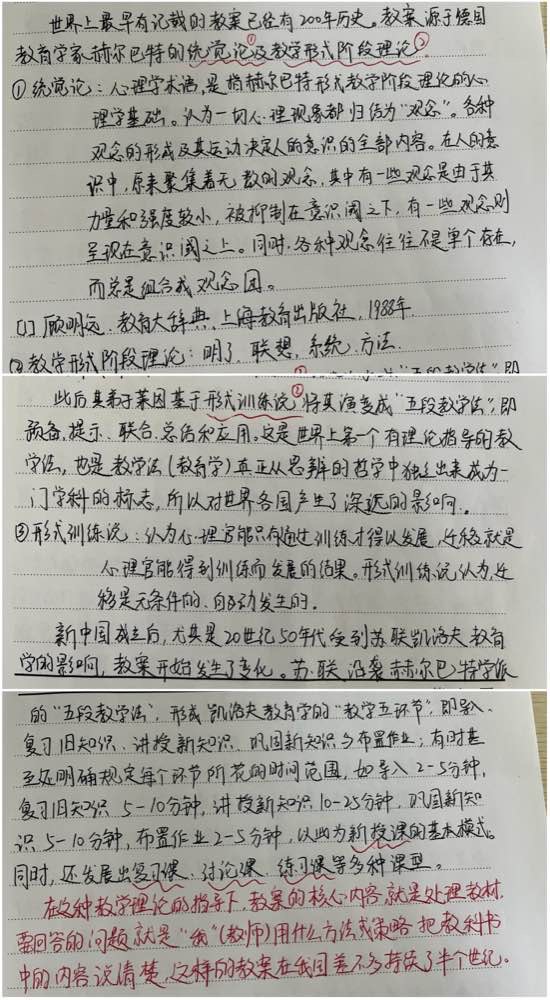 世界上最早有记载的教案已经有200年历史。教案源于德国
教育学家赫尔巴特的统觉论①及教学形式阶段理论②
①统觉论：心理学术语，是指赫尔巴特形式教学阶段理论的心
理学基础。认为一切心理现象都归结为“观念”。各种
观念的形成及其运动决定人的意识的全部内容。在人的意
识中，原来聚集着无数的观念，其中有一些观念是由于其
力量和强度较小，被抑制在意识阈之下，有一些观念则
呈现在意识阈之上。同时，各种观念往往不是单个存在，
而总是组合成观念团。
[1] 顾明远．教育大辞典．上海教育出版社，1988年．
②教学形式阶段理论：明了、联想、系统、方法．
此后其弟子莱因基于形式训练说③将其演变成“五段教学法”，即
预备、提示、联合、总结和应用。这是世界上第一个有理论指导的教
学法，也是教学法（教育学）真正从思辨的哲学中独立出来成为一
门学科的标志，所以对世界各国产生了深远的影响．
③形式训练说：认为心理官能只有通过训练才得以发展，迁移就是
心理官能得到训练而发展的结果。形式训练说认为，迁
移是无条件的、自动发生的．
新中国成立后，尤其是20世纪50年代受到苏联凯洛夫教育
学的影响，教案开始发生了变化。苏联沿袭赫尔巴特学派
的“五段教学法”，形成凯洛夫教育学的“教学五环节”，即导入、
复习旧知识、讲授新知识、巩固新知识与布置作业；有时甚
至还明确规定每个环节所花的时间范围，如导入2-5分钟，
复习旧知识5-10分钟，讲授新知识10-25分钟，巩固新知
识5-10分钟，布置作业2-5分钟，以此为新授课的基本模式。
同时，还发展出复习课、讨论课、练习课等多种课型。
在这种教学理论的指导下，教案的核心内容就是处理教材，
要回答的问题就是“我”（教师）用什么方法或策略把教科书
中的内容说清楚，这样的教案在我国差不多持续了半个世纪。